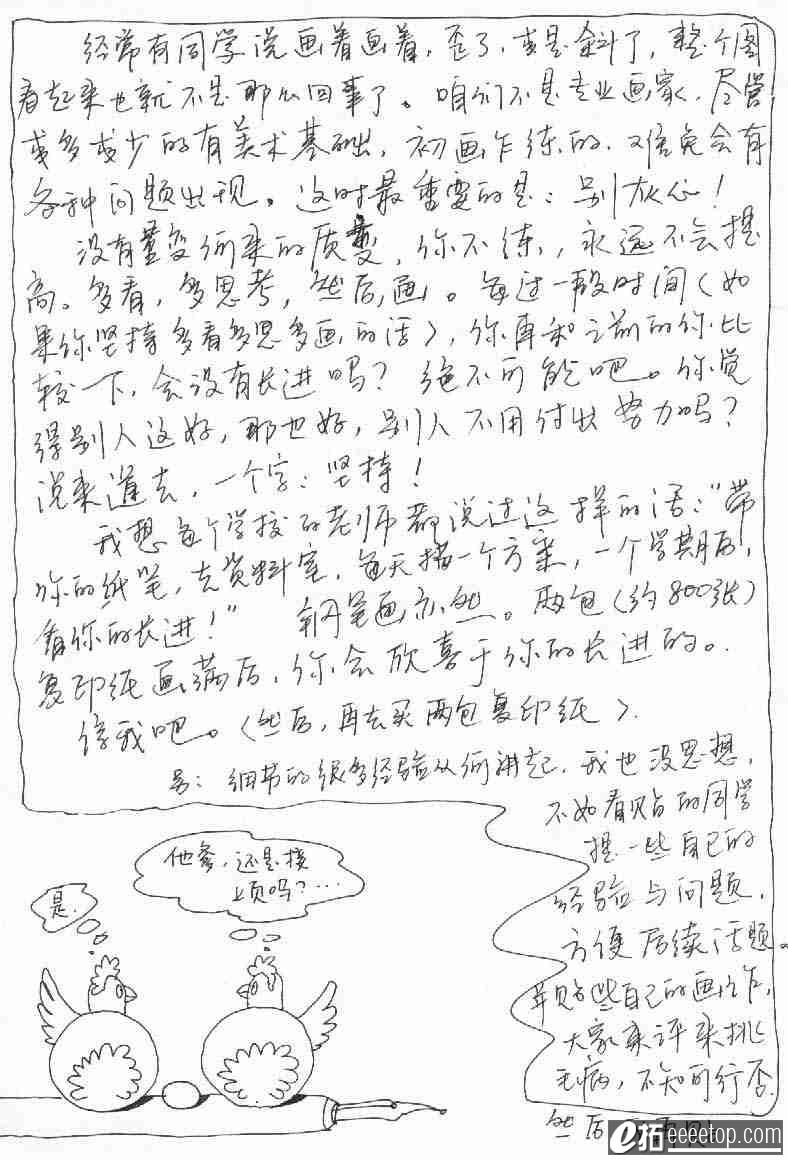 经常有同学说画着画着，歪了，或是斜了，整个图
看起来也就不是那么回事了。咱们不是专业画家，尽管
或多或少的有美术基础，初画乍练的，难免会有
各种问题出现。这时最重要的是：别灰心！
没有量变何来的质变，你不练，永远不会提
高。多看，多思考，然后，画。每过一段时间（如
果你坚持多看多思多画的话），你再和之前的你比
较一下，会没有长进吗？绝不可能吧。你觉
得别人这好，那也好，别人不用付出努力吗？
说来道去，一个字：坚持！
我想每个学校的老师都说过这样的话："带
你的纸笔，去资料室，每天描一个方案，一个学期后，
看你的长进！" 钢笔画亦然。两包（约800张）
复印纸画满后，你会欣喜于你的长进的。
信我吧。（然后，再去买两包复印纸）.
另：细节的很多经验从何讲起，我也没思想，
不如看贴的同学
提一些自己的
经验与问题，
方便后续话题。
贴些自己的画作，
大家来评来挑
毛病，不知可行否.
然后
他爹，还是接
上页吗？…
是.
e拓 eeeetop.com